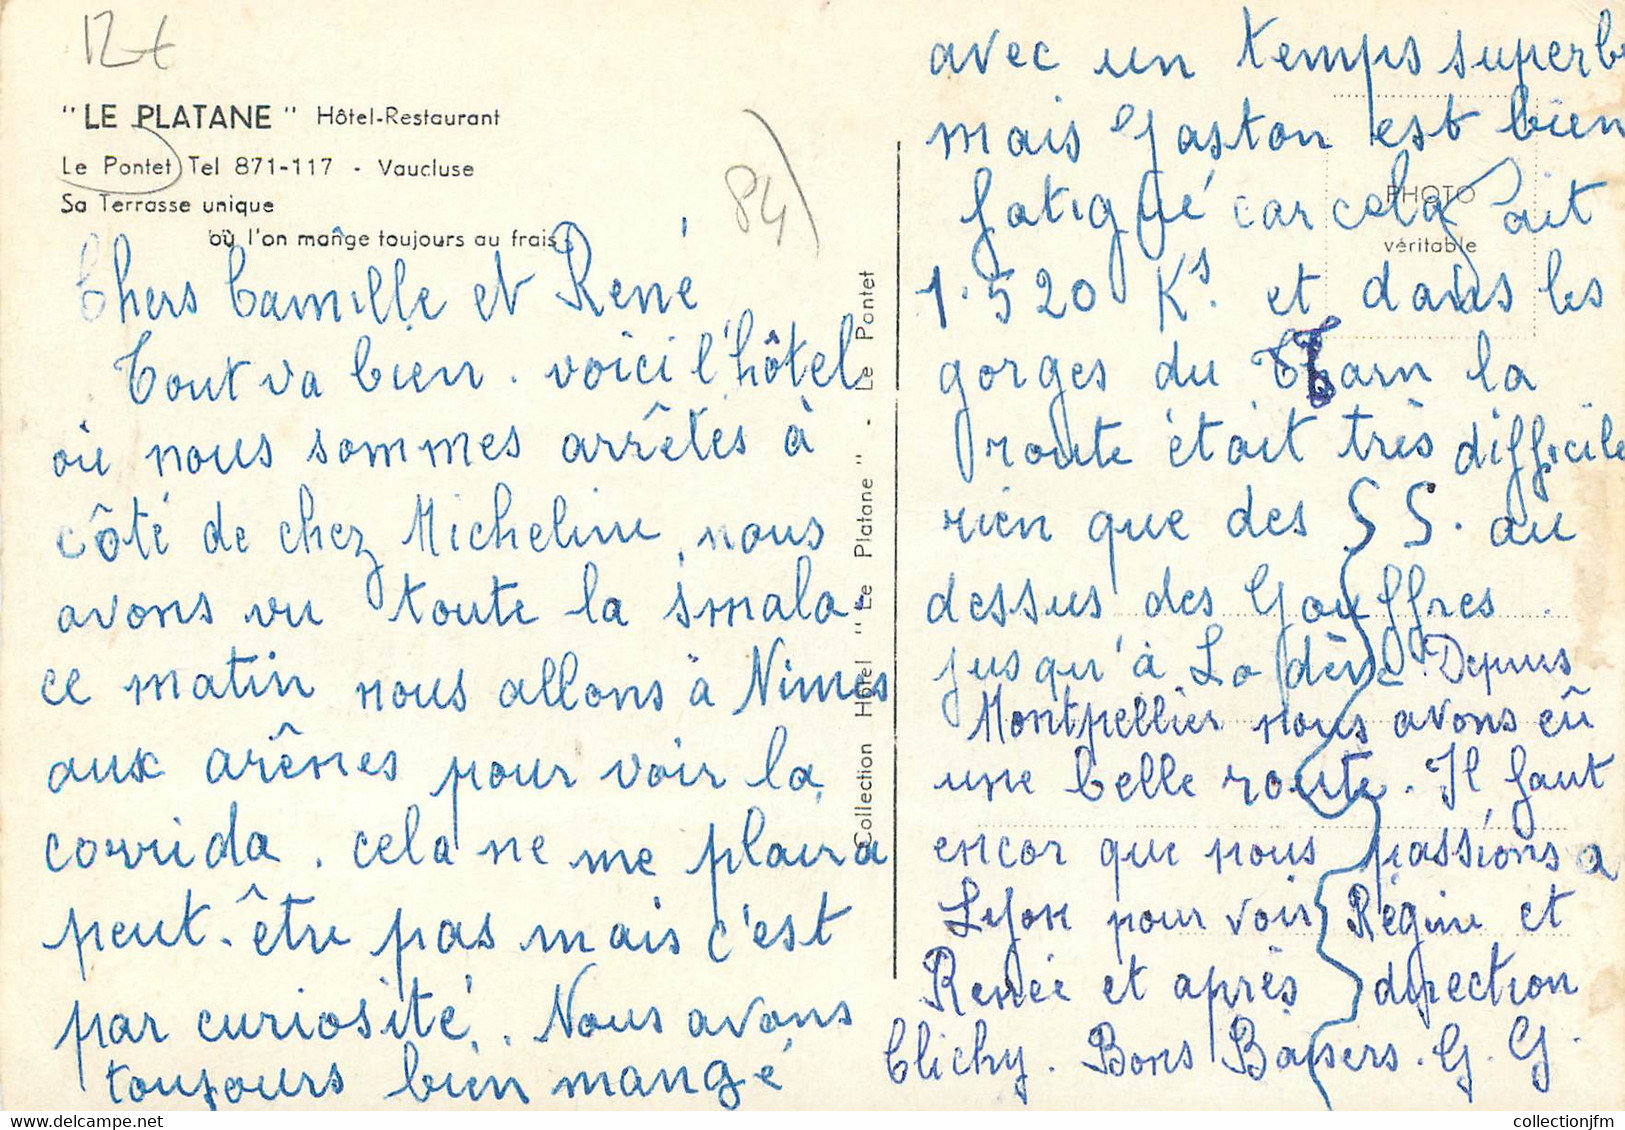 12 t
"LE PLATANE" Hôtel-Restaurant
Le Pontet Tel 871-117 - Vaucluse
Sa Terrasse unique
où l'on mange toujours au frais.
84)
Chers Camille et René
Tout va bien. voici l'hôtel
où nous sommes arrêtés à
côté de chez Micheline, nous
avons vu toute la smala.
ce matin nous allons à Nimes
aux arênes pour voir la
corrida. cela ne me plaira
peut-être pas mais c'est
par curiosité. Nous avons
toujours bien mangé
Collection Hôtel "Le Platane" - Le Pontet
PHOTO
véritable
avec un temps superbe
mais Gaston est bien
fatigué car cela fait
1.520 Ks. et dans les
gorges du Tarn la
route était très difficile
rien que des S S. au
dessus des Gouffres.
jusqu'à Lodève. Depuis
Montpellier nous avons eû
une belle route. Il faut
encor que nous passions a
Lyon pour voir Régine et
Renée et après direction
Clichy. Bons Baisers. G. G.
collectionjfm